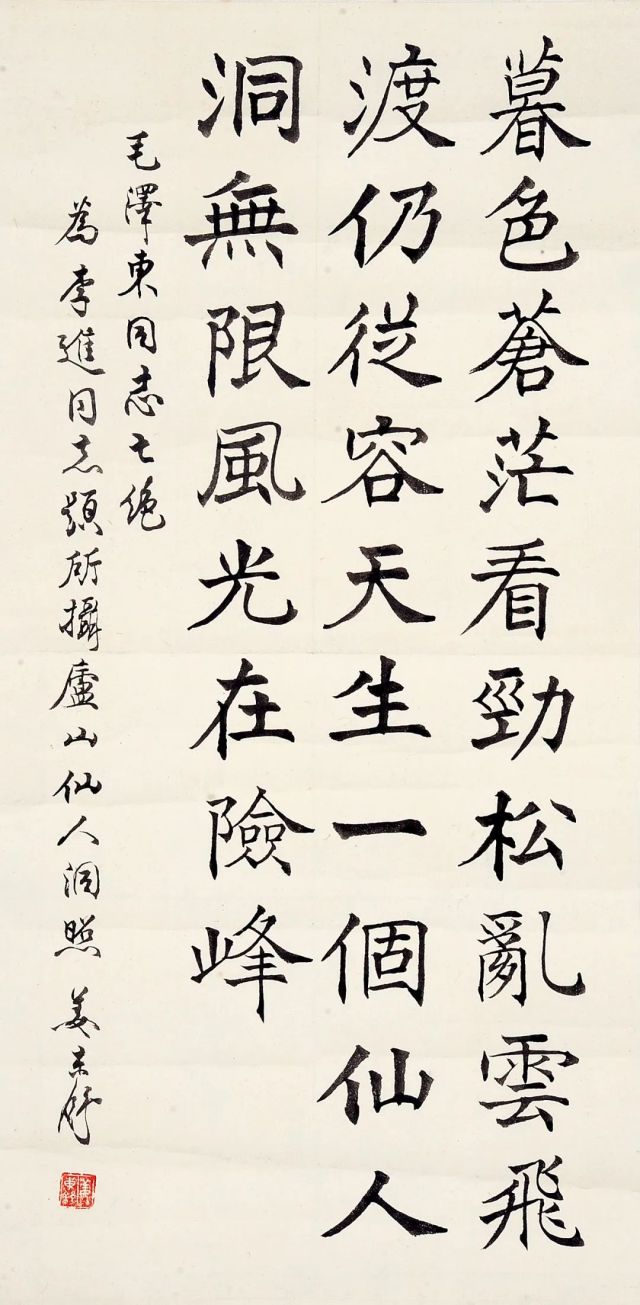 暮色蒼茫看勁松亂雲飛
渡仍從容天生一個仙人
洞無限風光在險峰
毛澤東同志七絕
為李進同志題所攝廬山仙人洞照 姜東舒